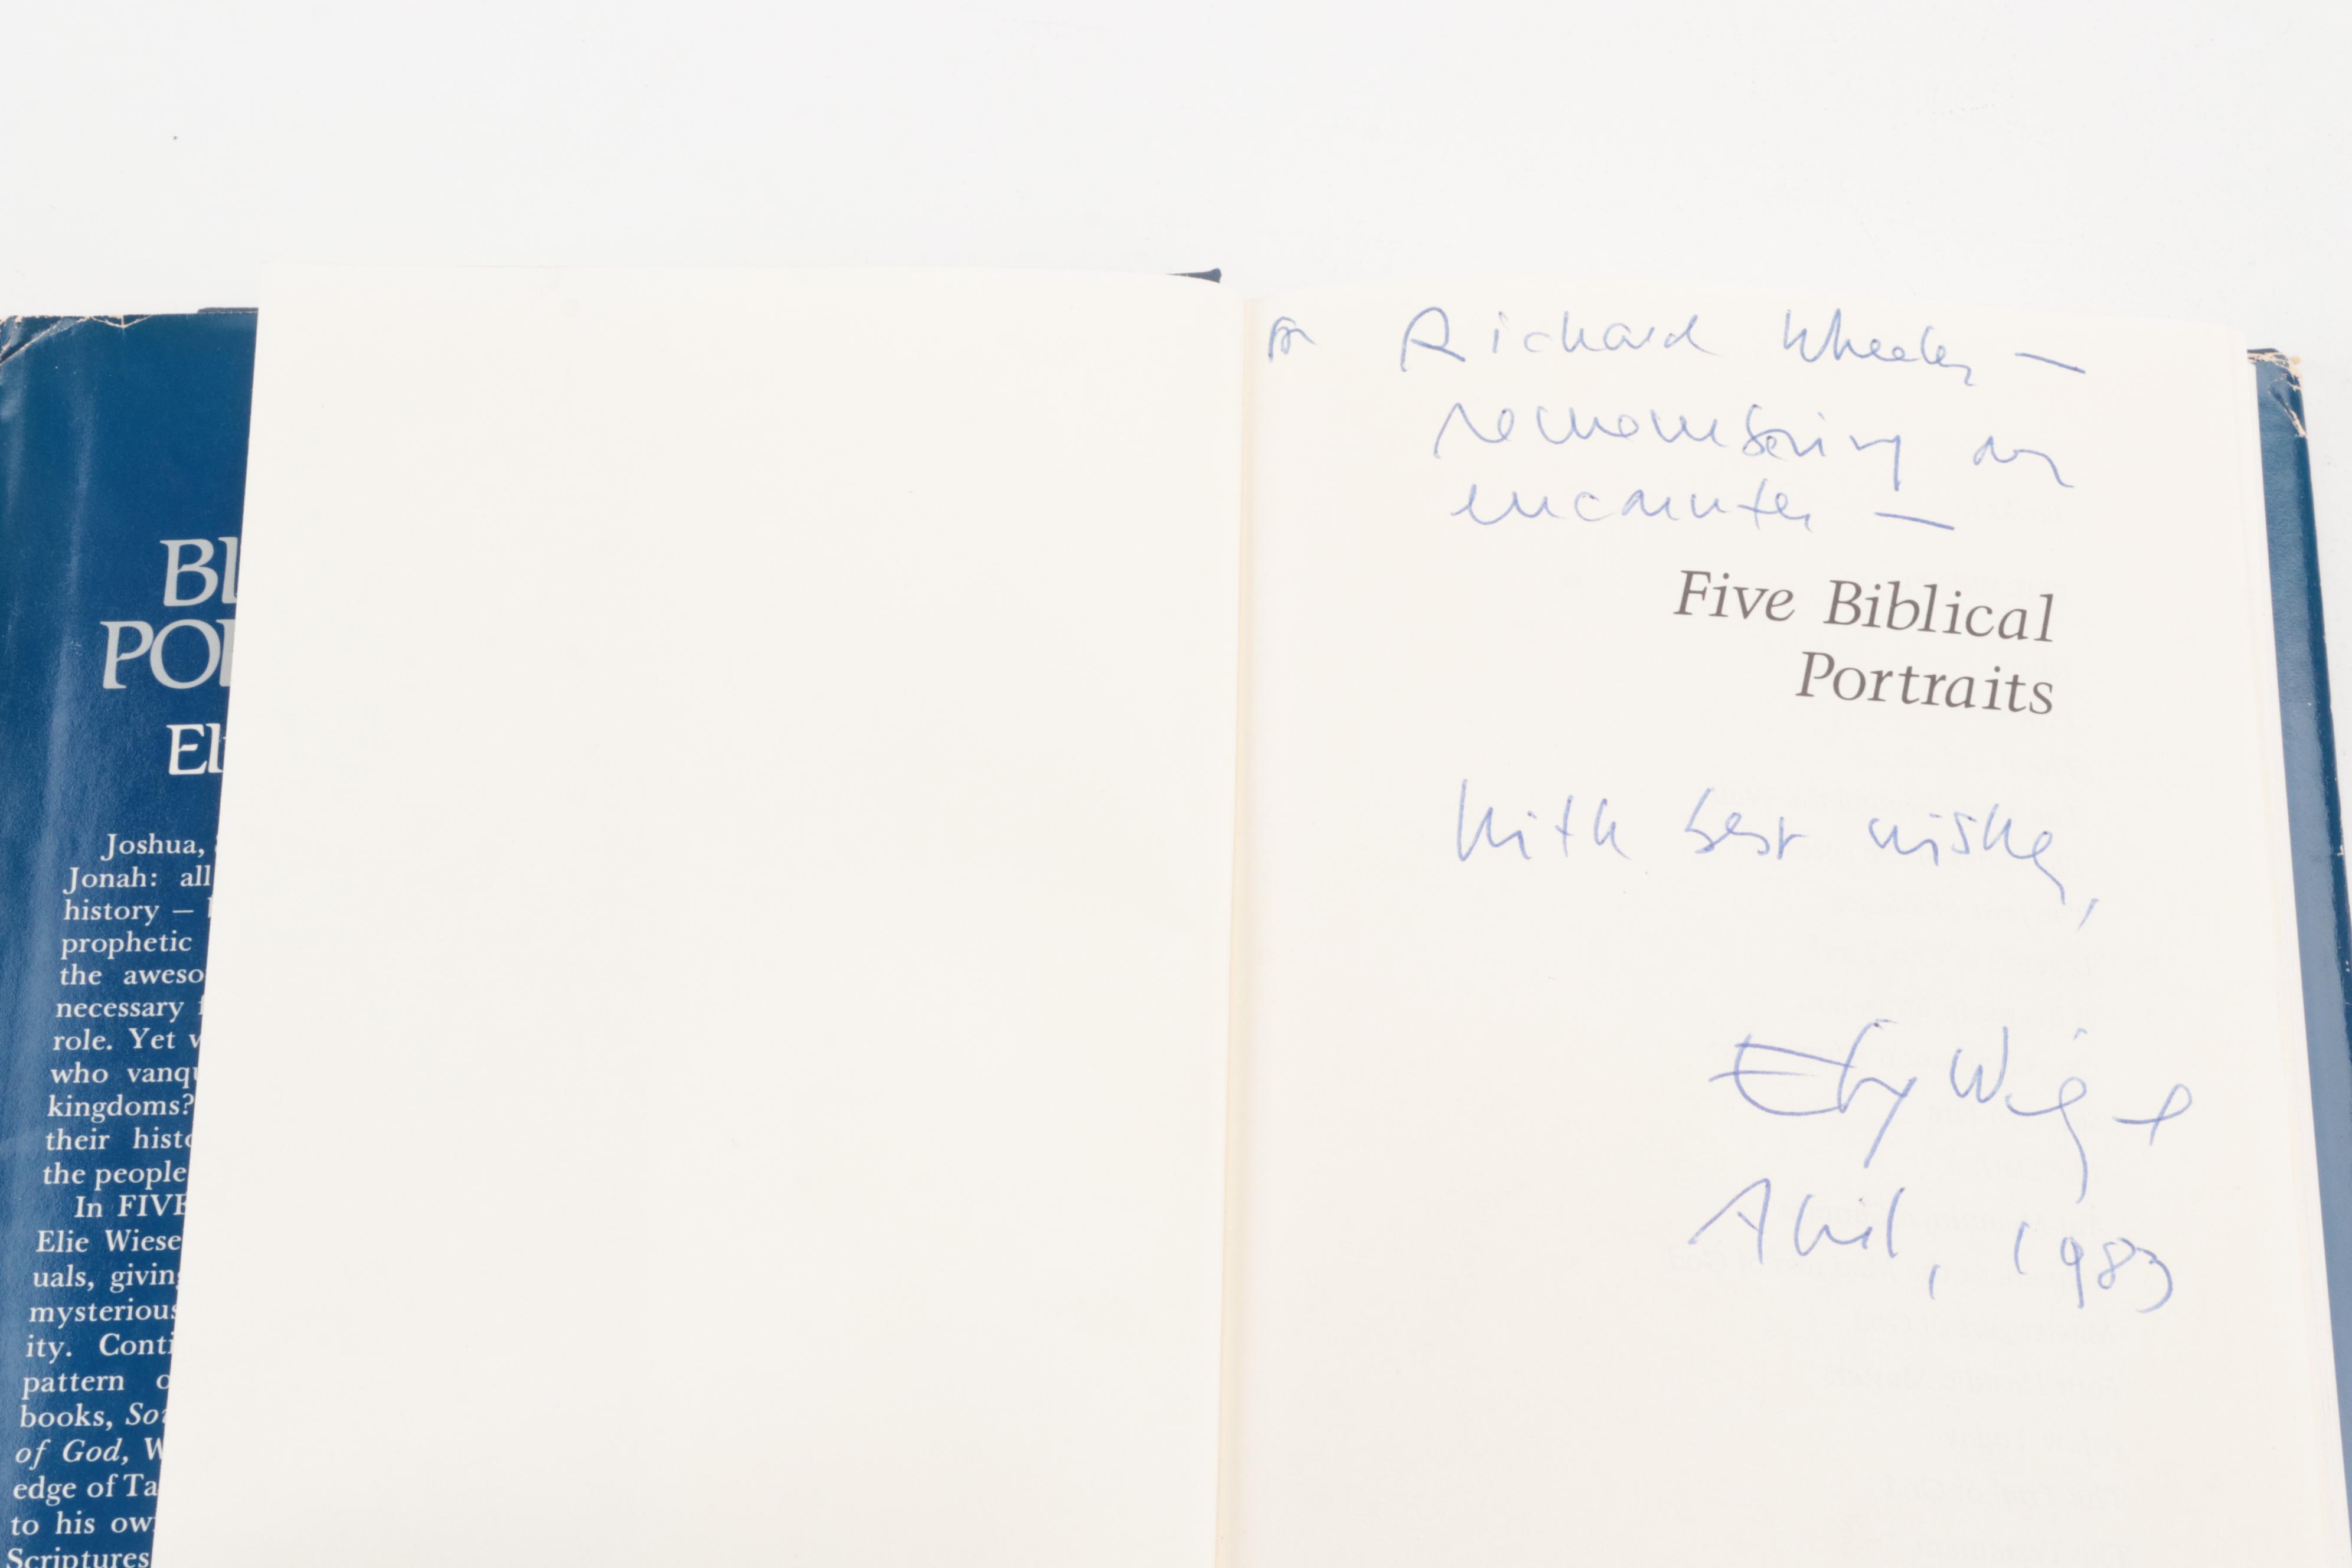 BI
POR
Eli
Joshua,
Jonah: all
history –
prophetic
the aweso
necessary
role. Yet
who vanqu
kingdoms?
their histo
the people
In FIVE
Elie Wiese
uals, giving
mysterious
ity. Conti
pattern o
books, Sou
of God, W
edge of Ta
to his own
Scriptures
for Richard Wheeler —
remembering an
encounter —
Five Biblical
Portraits
With best wishes,
Elie Wiesel
April, 1983